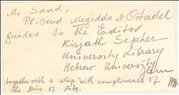 Mr Saad,
Pl. send Megiddo & Citadel
guides to The Editor
Kirjath Sepher
University Library
Hebrew University
J'lem
together with a slip with compliments of
the Dir. of Ant.